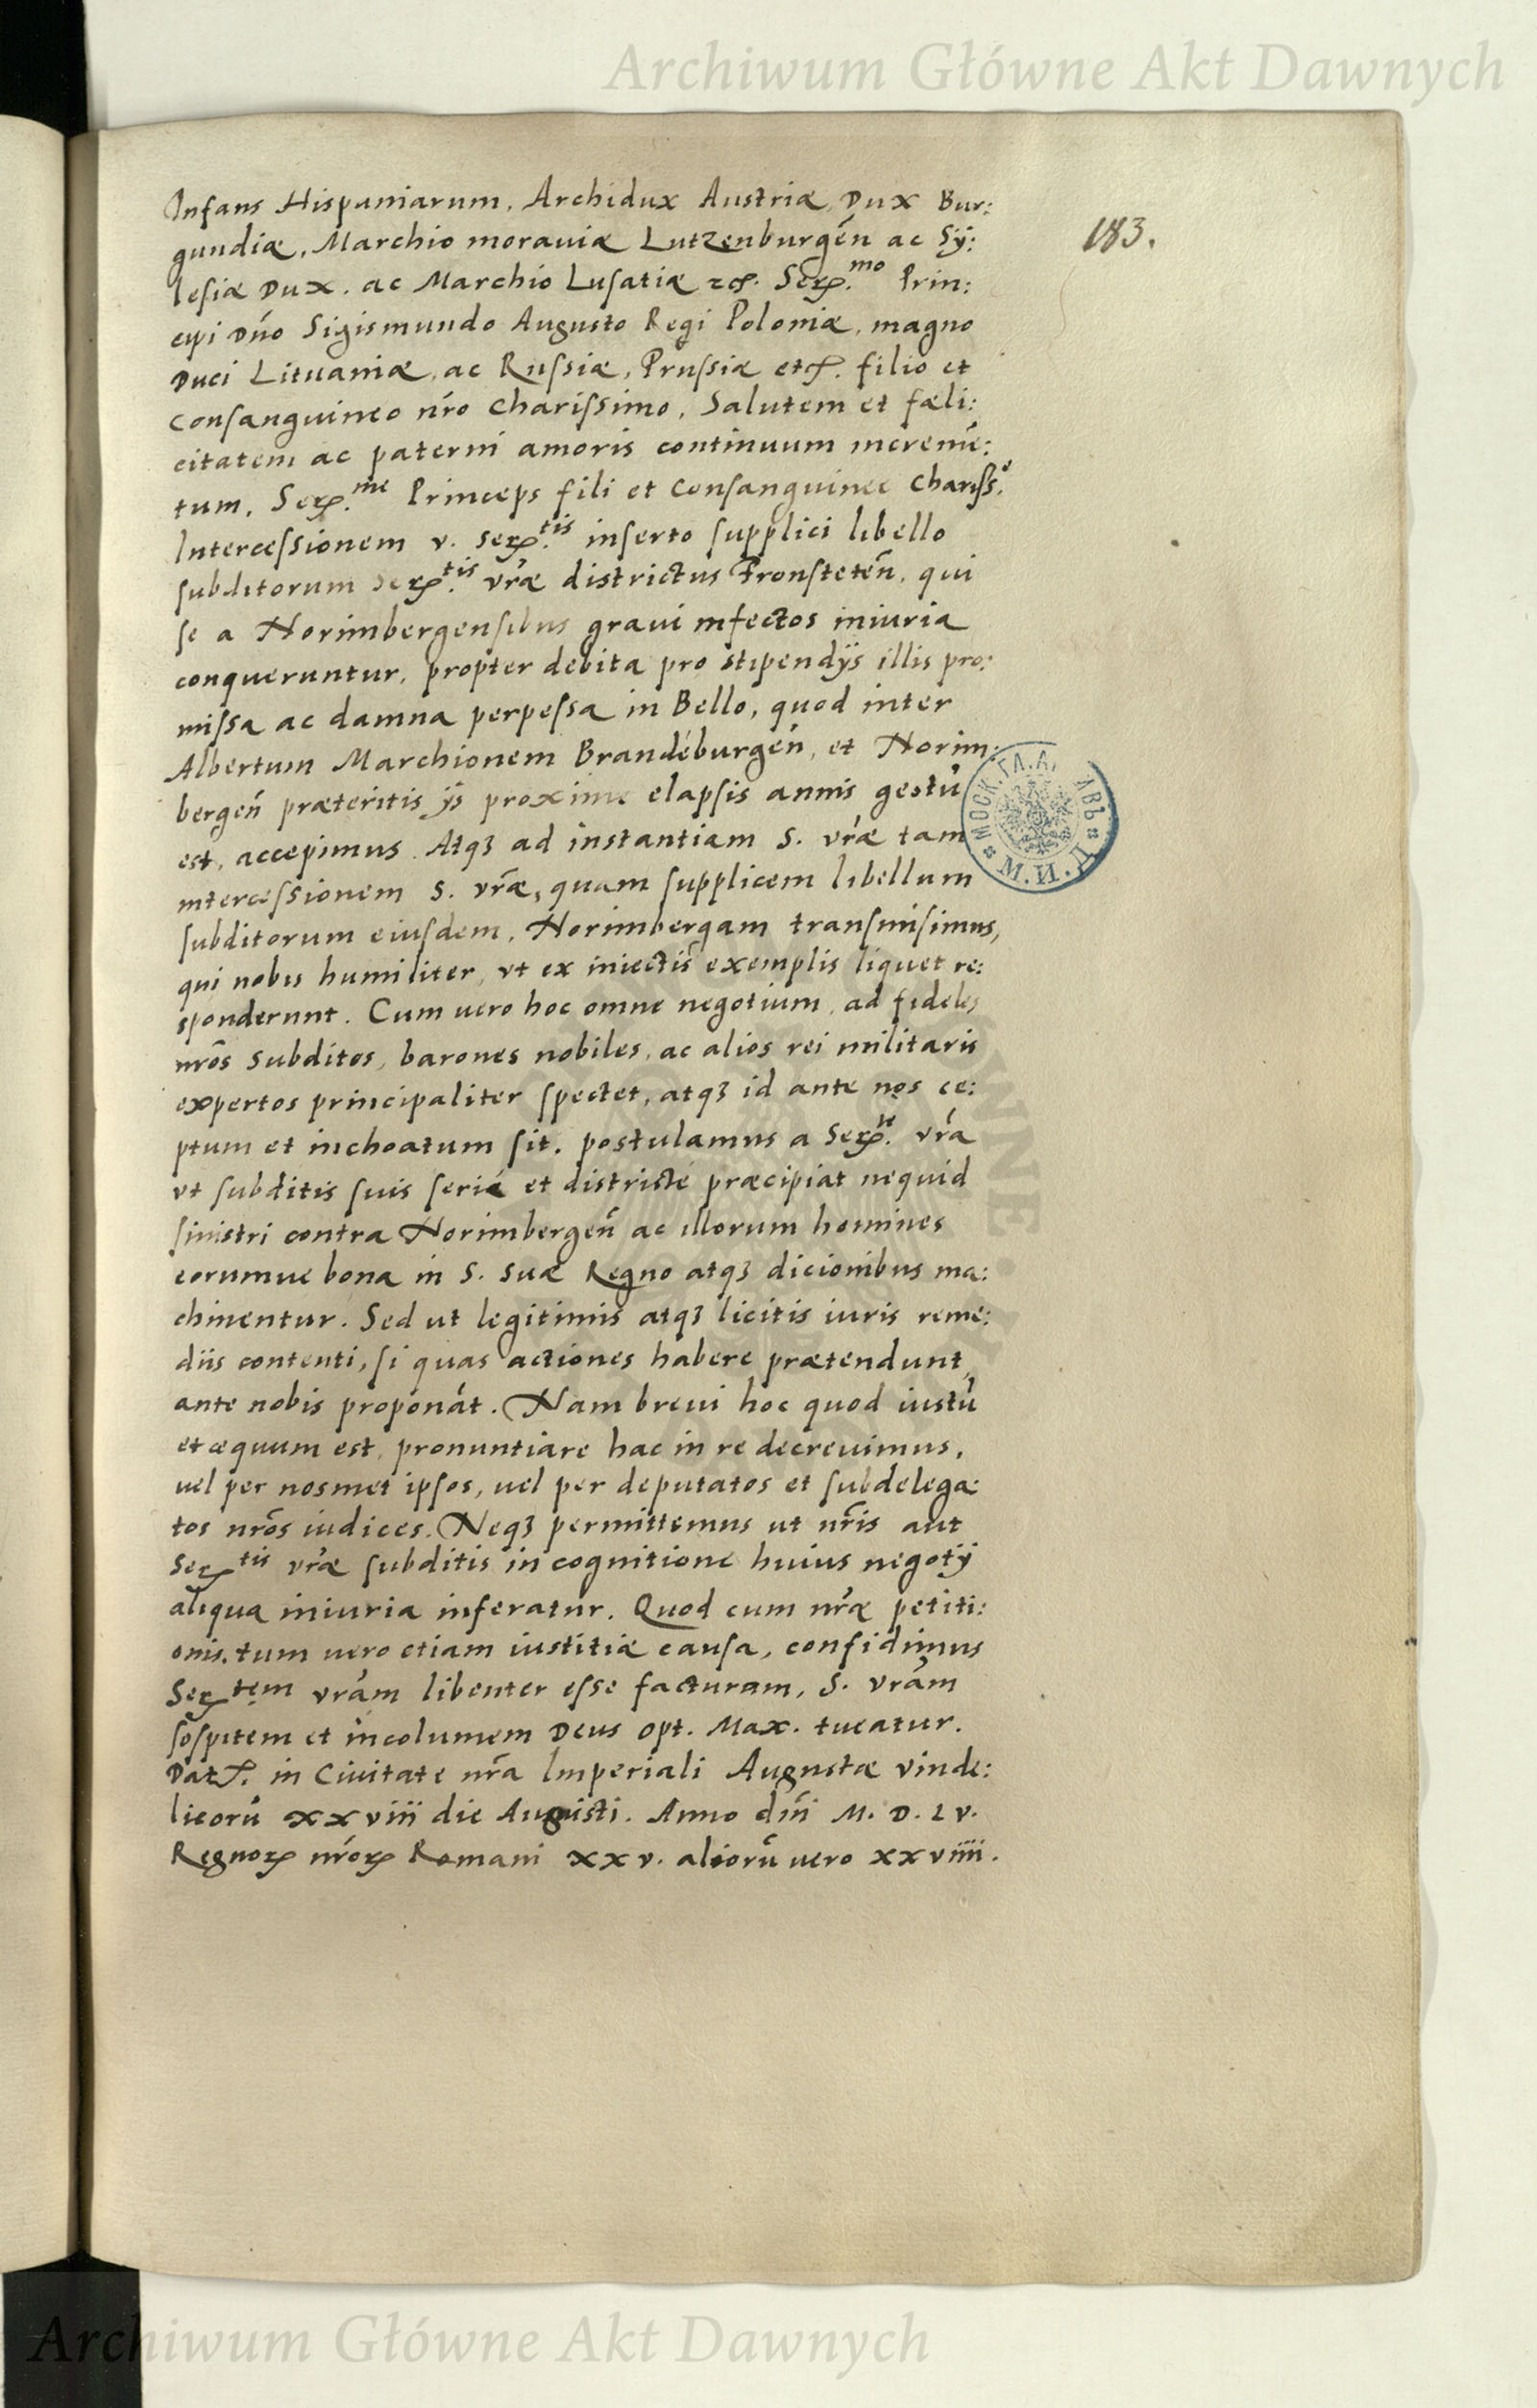 Archiwum Główne Akt Dawnych
183.
Infans Hispaniarum, Archidux Austriæ, Dux Bur:
gundiæ, Marchio morauiæ Lutzenburgeń ac Sÿ:
lesiæ Dux. ac Marchio Lusatiæ etc. Serꝫ.mo Prin:
cipi Dńo Sigismundo Augusto Regi Poloniæ, magno
Duci Lituaniæ, ac Russiæ, Prussiæ etc. filio et
consanguineo nŕo charissimo, Salutem et fæli:
citatem ac paterni amoris continuum incremē:
tum. Serꝫ.me Princeps fili et consanguinee chariss.e
Intercessionem v. serꝫ.tis inserto supplici libello
subditorum serꝫ.tis vŕæ districtus Fronsteteń, qui
se a Norimbergensibus graui infectos iniuria
conqueruntur, propter debita pro stipendÿs illis pro:
missa ac damna perpessa in Bello, quod inter
Albertum Marchionem Brandéburgeń, et Norim:
bergeń præteritis ÿs proxime elapsis annis gestū
est, accepimus. Atqꝫ ad instantiam S. vŕæ tam
intercessionem S. vŕæ, quam supplicem libellum
subditorum eiusdem, Norimbergam transmisimus,
qui nobis humiliter, vt ex iniectis exemplis liquet re:
sponderunt. Cum uero hoc omne negotium, ad fideles
nŕos subditos, barones nobiles, ac alios rei militaris
expertos principaliter spectet, atqꝫ id ante nos ce:
ptum et inchoatum sit. postulamus a Serꝫ.te vŕa
vt subditis suis serié et districté præcipiat nequid
sinistri contra Norimbergeń ac illorum homines
eorumue bona in S. suæ Regno atqꝫ dicionibus ma:
chinentur. Sed ut legitimis atqꝫ licitis iuris reme:
diis contenti, si quas actiones habere prætendunt,
ante nobis proponāt. Nam breui hoc quod iustū
et æquum est, pronuntiare hac in re decreuimus,
uel per nosmet ipsos, uel per deputatos et subdelega:
tos nŕos iudices. Neqꝫ permittemus ut nŕis aut
Serꝫtis vŕæ subditis in cognitione huius negotÿ
aliqua iniuria inferatur. Quod cum nŕæ petiti:
onis, tum uero etiam iustitiæ causa, confidimus
Serꝫtem vŕam libenter esse facturam, S. vŕam
sospitem et incolumem Deus opt. Max. tueatur.
Datꝫ. in Ciuitate nŕa Imperiali Augustæ vinde:
licorū xxviii die Augusti. Anno dńi M. D. Lv.
Regnorꝫ nŕorꝫ Romani xxv. aliorū uero xxviiii.
МОСК. ГЛ. А
М.И.Д.
Archiwum Główne Akt Dawnych